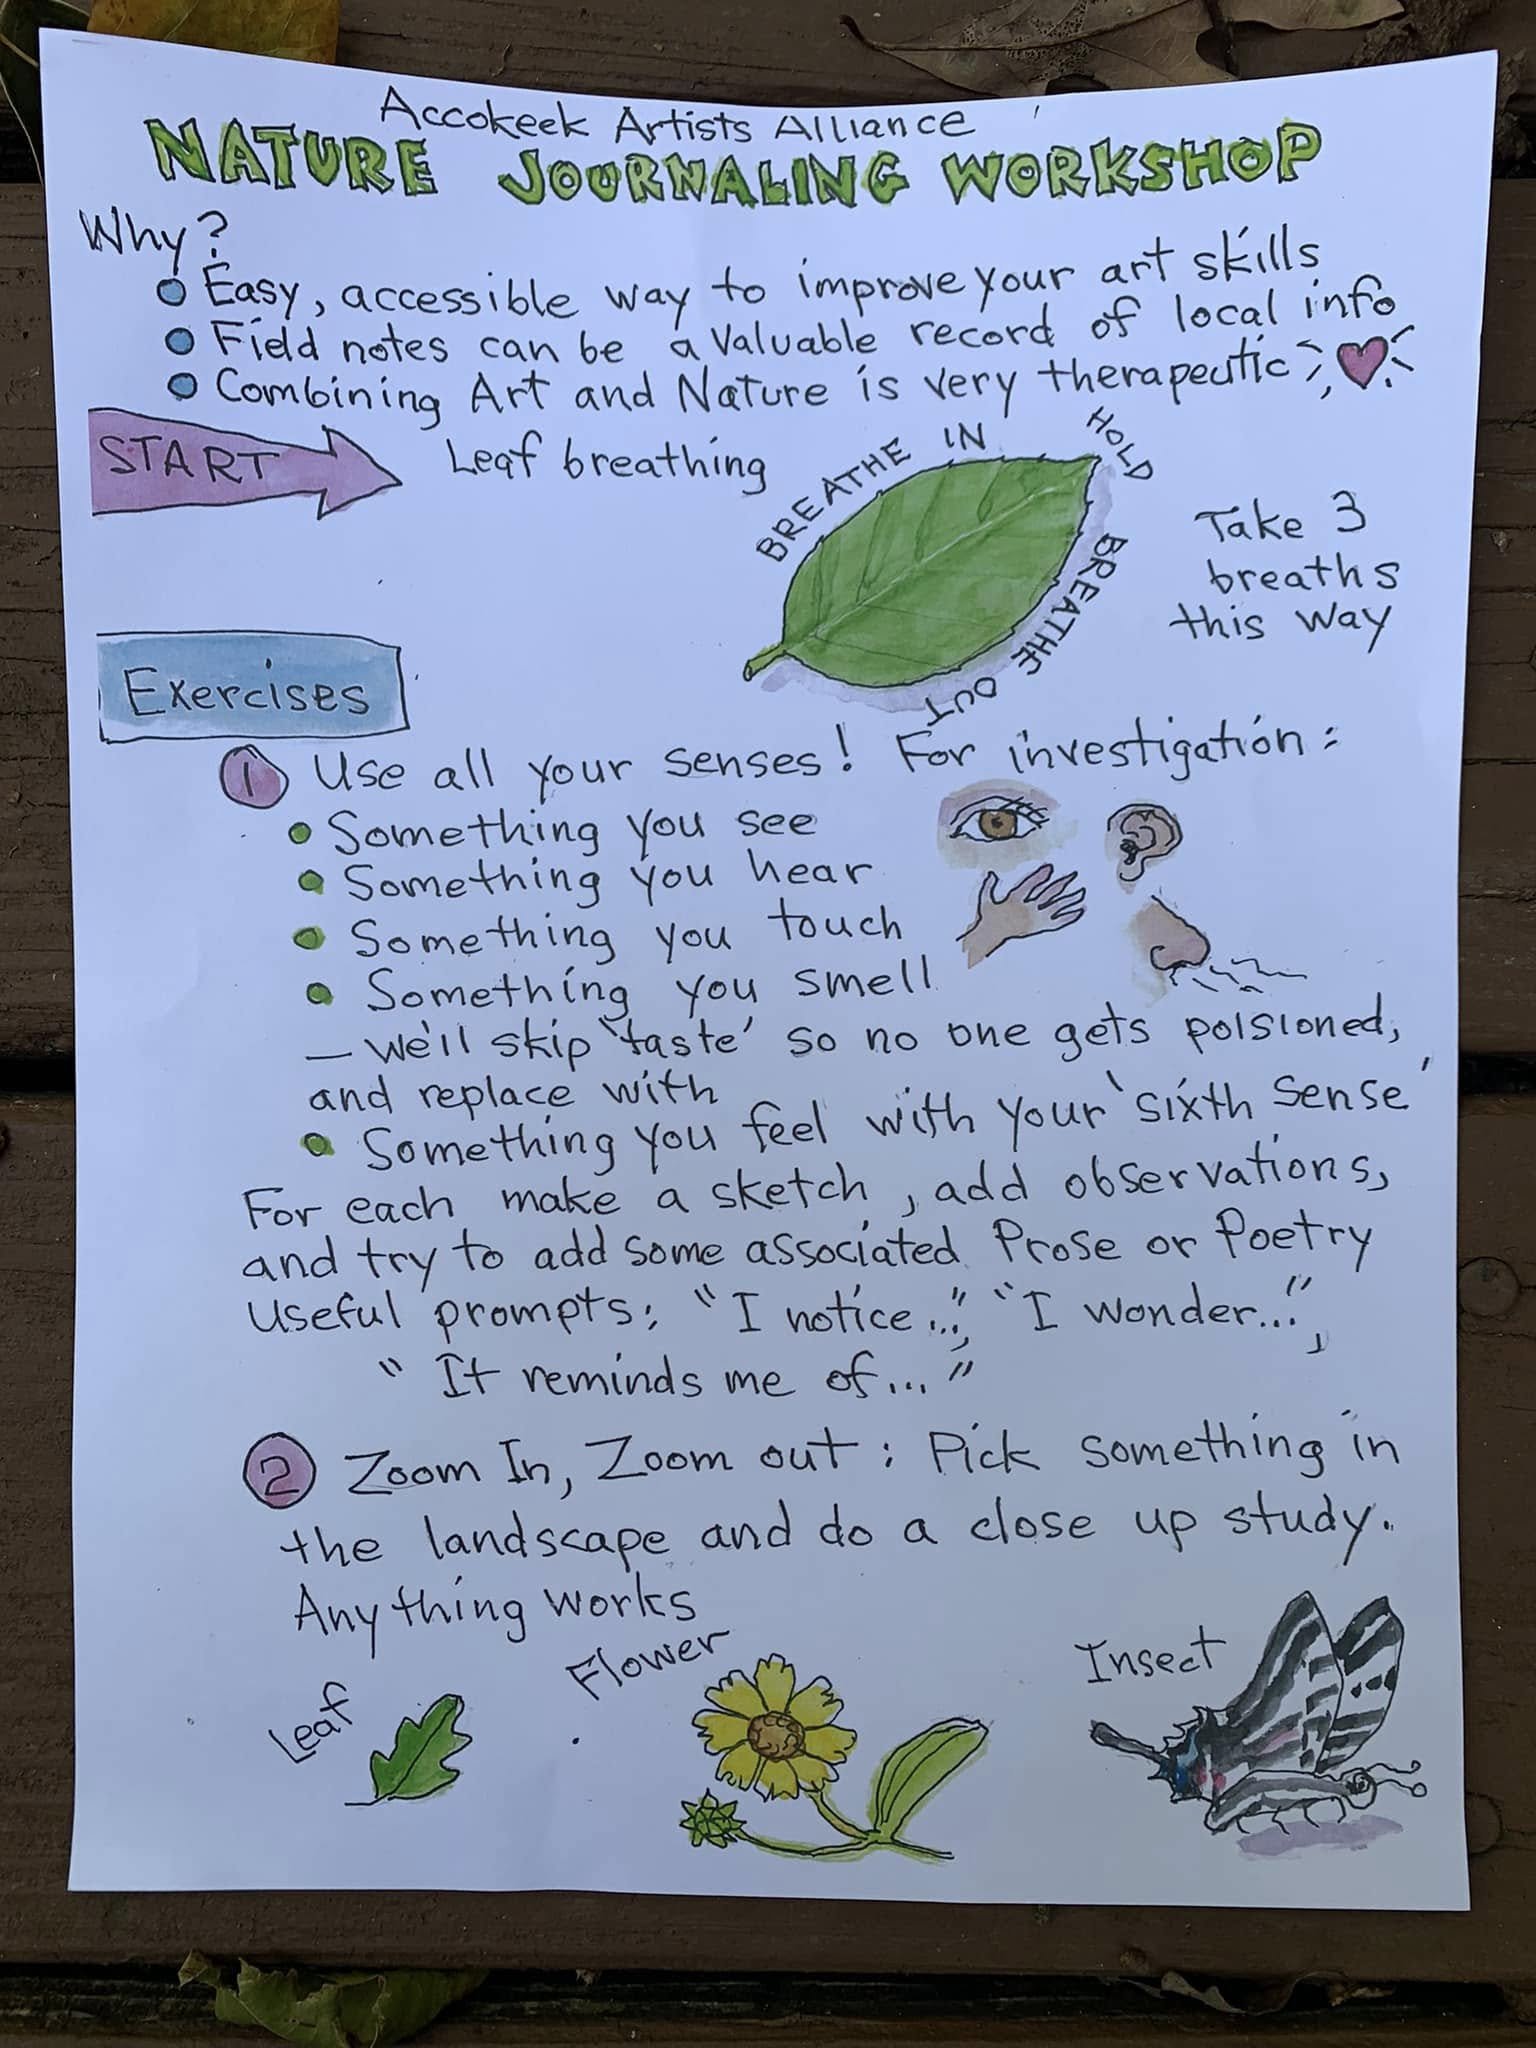 Accokeek Artists Alliance
NATURE JOURNALING WORKSHOP
Why?
Easy, accessible way to improve your art skills
Field notes can be a valuable record of local info
Combining Art and Nature is very therapeutic
START
Leaf breathing
BREATHE IN
HOLD
BREATHE OUT
Take 3
breaths
this way
Exercises
1 Use all your senses! For investigation:
Something you see
Something you hear
Something you touch
Something you smell
— we'll skip 'taste' so no one gets poisioned,
and replace with
Something you feel with your 'sixth sense'
For each make a sketch, add observations,
and try to add some associated Prose or Poetry
Useful prompts: "I notice...", "I wonder...",
"It reminds me of..."
2 Zoom In, Zoom out: Pick something in
the landscape and do a close up study.
Anything works
Leaf
Flower
Insect